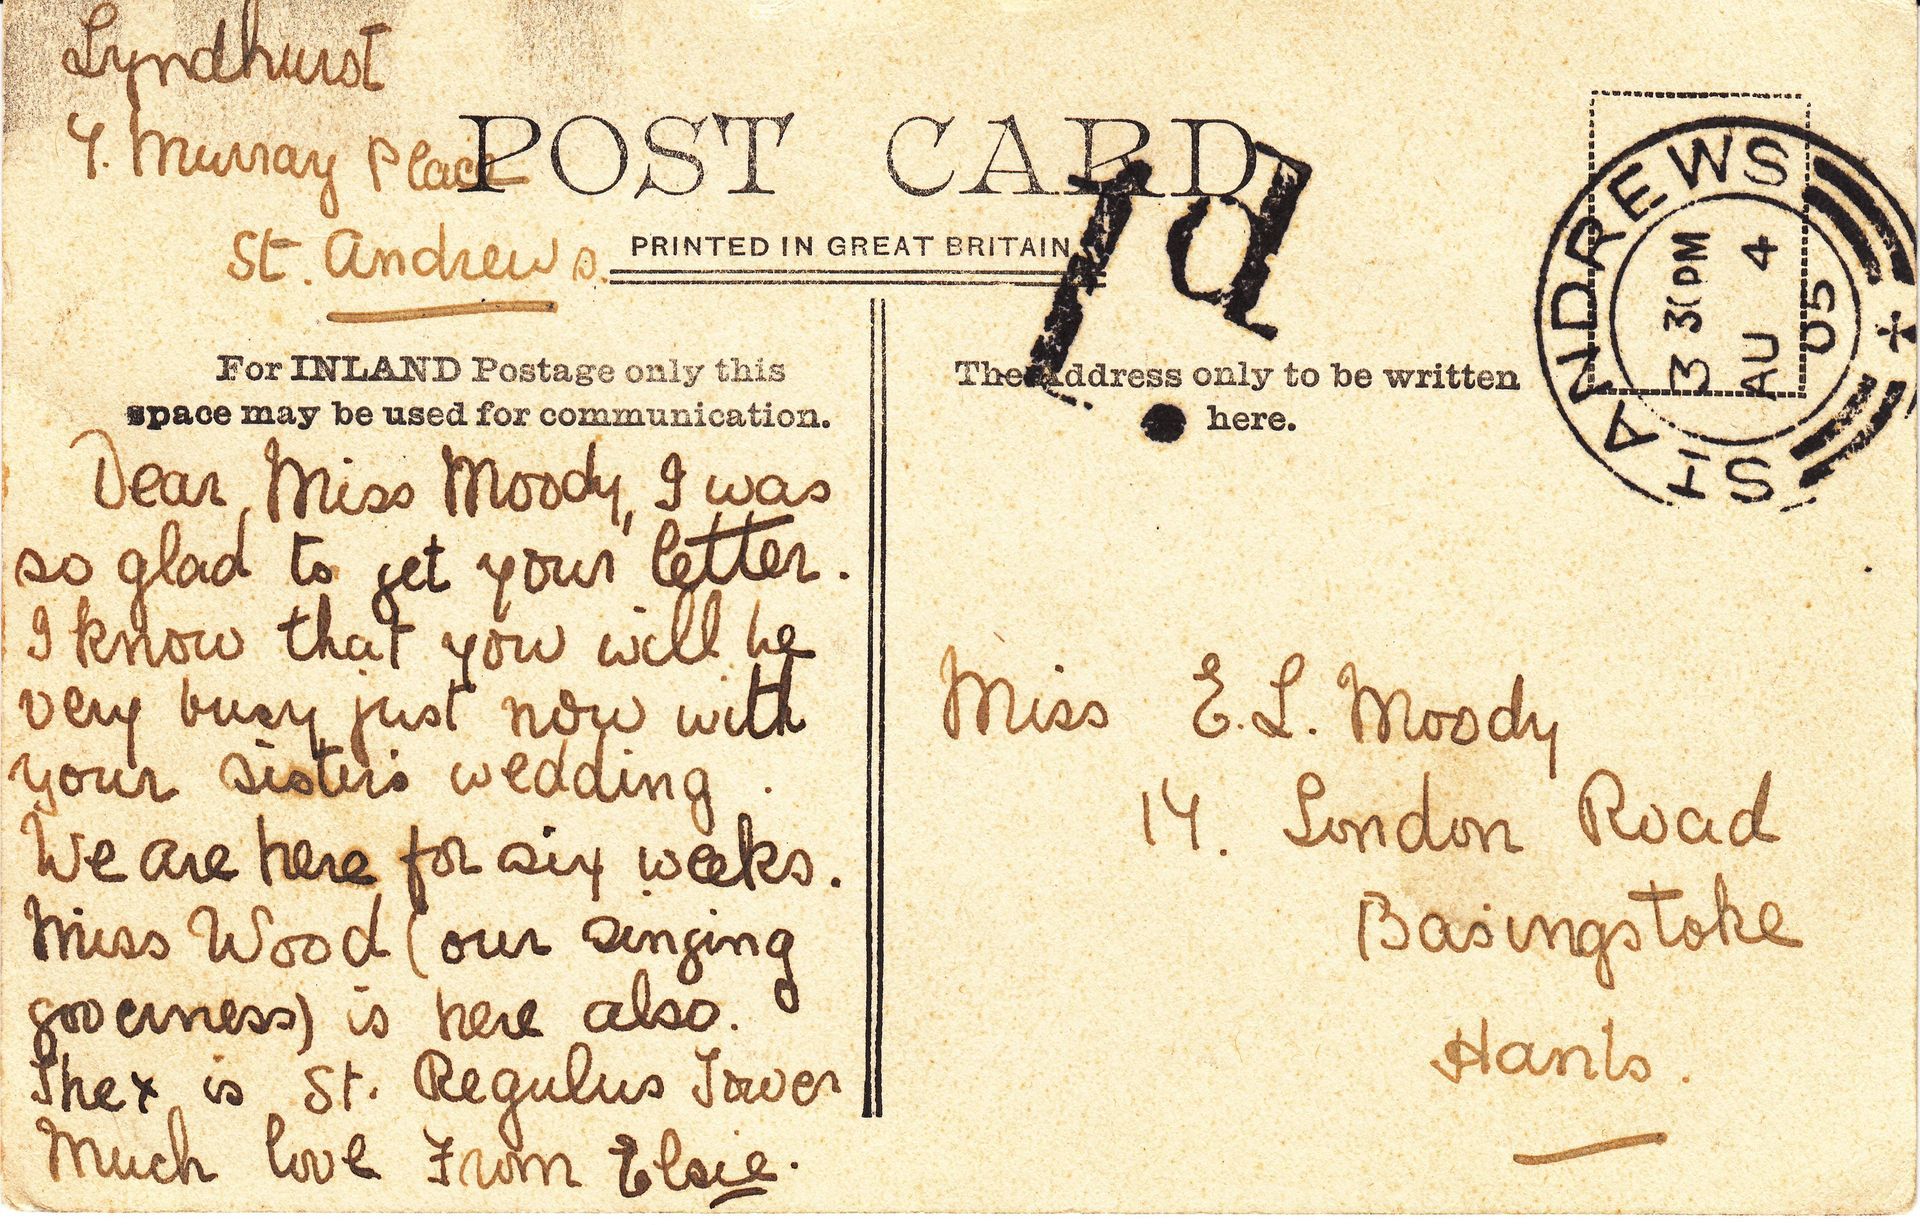 Lyndhurst
7. Murray Place
St. Andrews.
POST CARD
PRINTED IN GREAT BRITAIN
1d
ST ANDREWS
3 30PM
AU 4
05
For INLAND Postage only this
space may be used for communication.
The Address only to be written
here.
Dear Miss Moody, I was
so glad to get your letter.
I know that you will be
very busy just now with
your sister's wedding.
We are here for six weeks.
Miss Wood (our singing
governess) is here also.
The x is St. Regulus Tower
Much love From Elsie.
Miss E. L. Moody
14. London Road
Basingstoke
Hants.